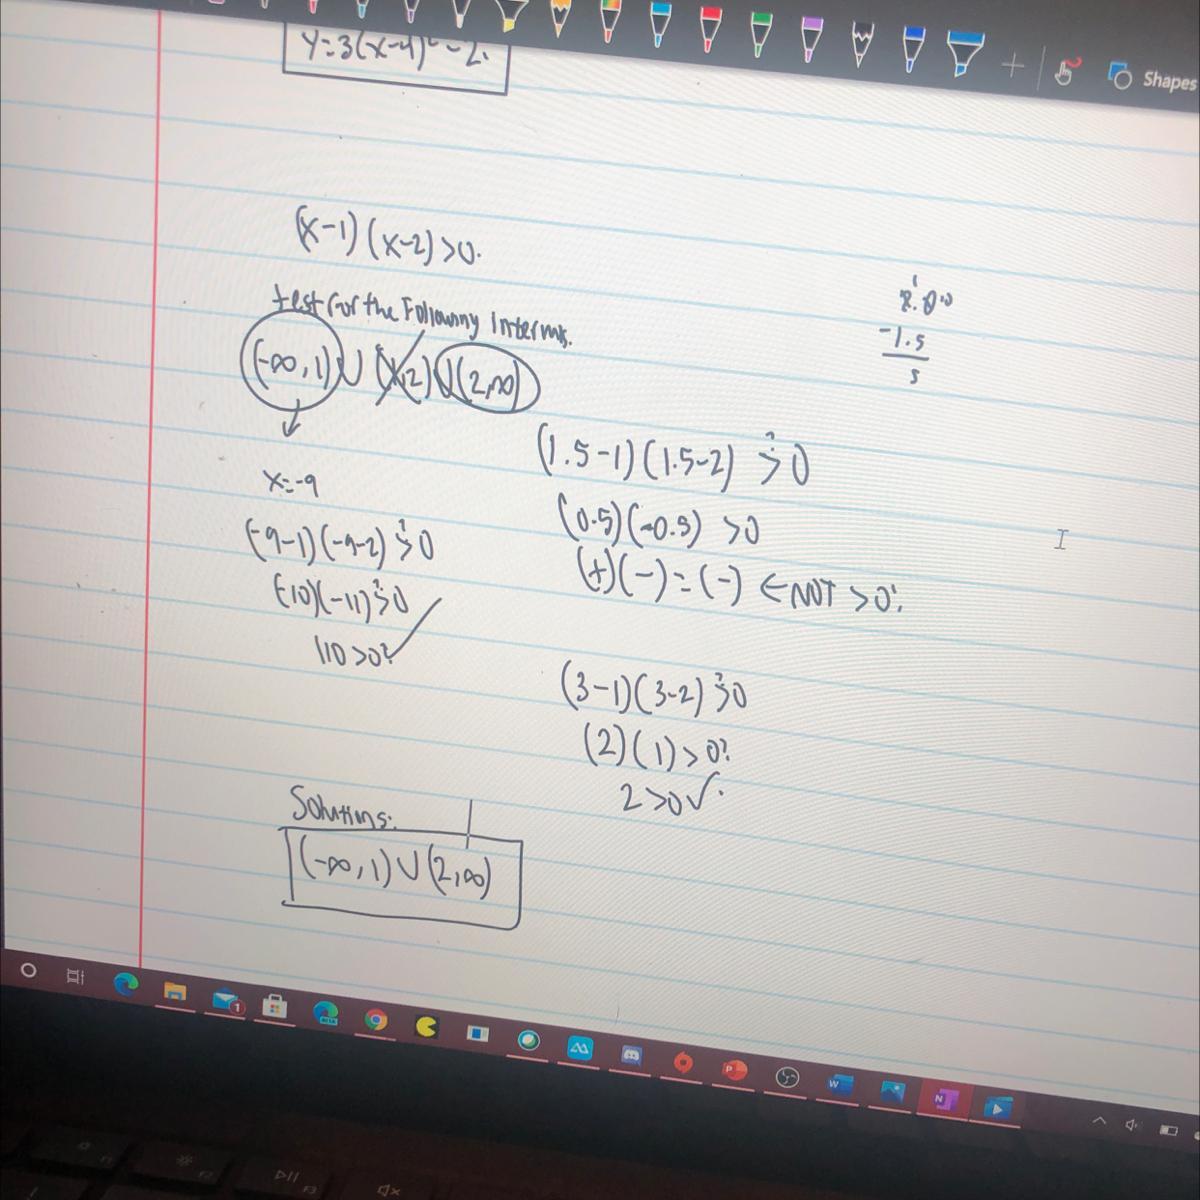 Shapes
y=3(x-4)² - 2.
(x-1)(x-2)>0.
test for the Following
(-∞,1)∪(1,2)∪(2,∞)
x=-9
(-9-1)(-9-2)>0
(-10)(-11)>0
110>0?✓
2.00
-1.5
5
(1.5-1)(1.5-2) >0
(0.5)(-0.5) >0
(+)(-)=(-) ← NOT >0!
(3-1)(3-2)>0
(2)(1)>0?
2>0✓.
Solutions:
(-∞,1)∪(2,∞)